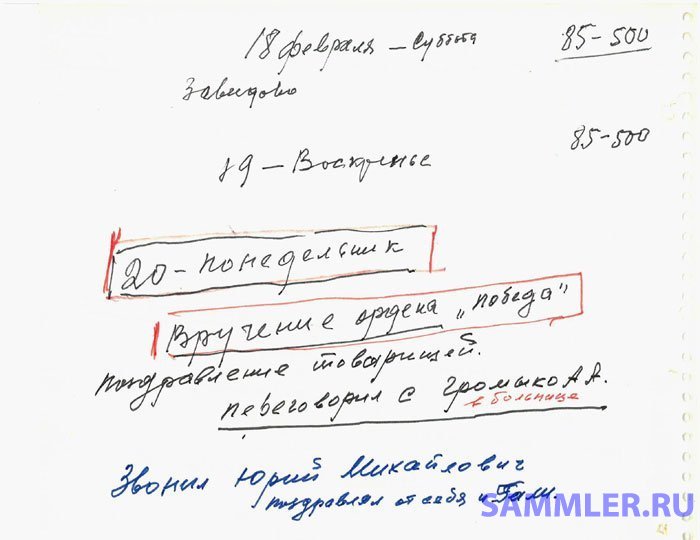 18 февраля – Суббота 85-500
Завидово
19 – Воскренье 85-500
20 – понедельник
Вручение ордена „Победа"
поздравление товарищей.
переговорил с Громыко А А.
в больнице
Звонил Юрий Михайлович
поздравлял от себя и Гал.
SAMMLER.RU